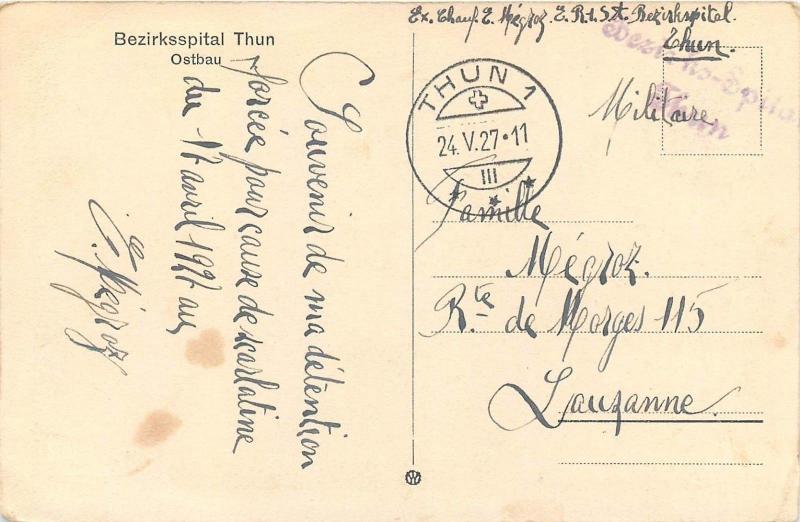 Bezirksspital Thun
Ostbau
Souvenir de ma détention
forcée pour cause de scarlatine
du 17 avril 1927 au
E. Mégroz
Ex. Chauf. E. Mégroz E. R. I. S. A. Bezirkspital
Thun.
Bezirks-Spital
Thun
Militaire
THUN 1
24.V.27•11
III
Famille
Mégroz.
Rte de Morges 115
Lausanne.